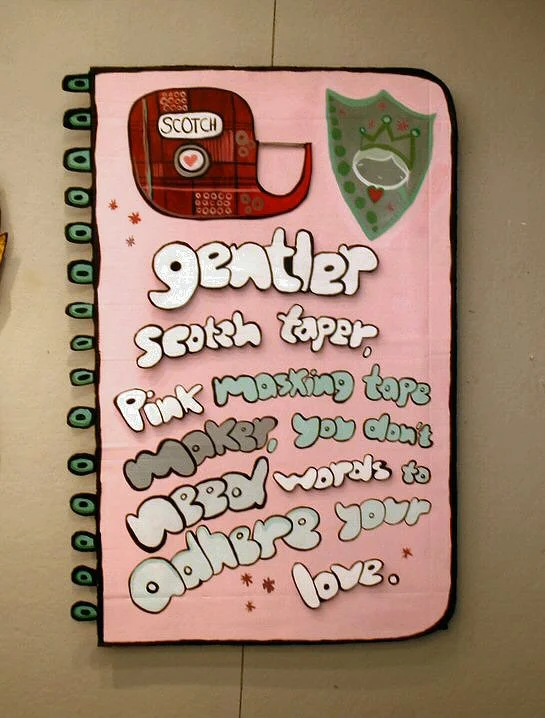 SCOTCH
gentler
scotch taper,
Pink masking tape
maker, you don't
need words to
adhere your
love.